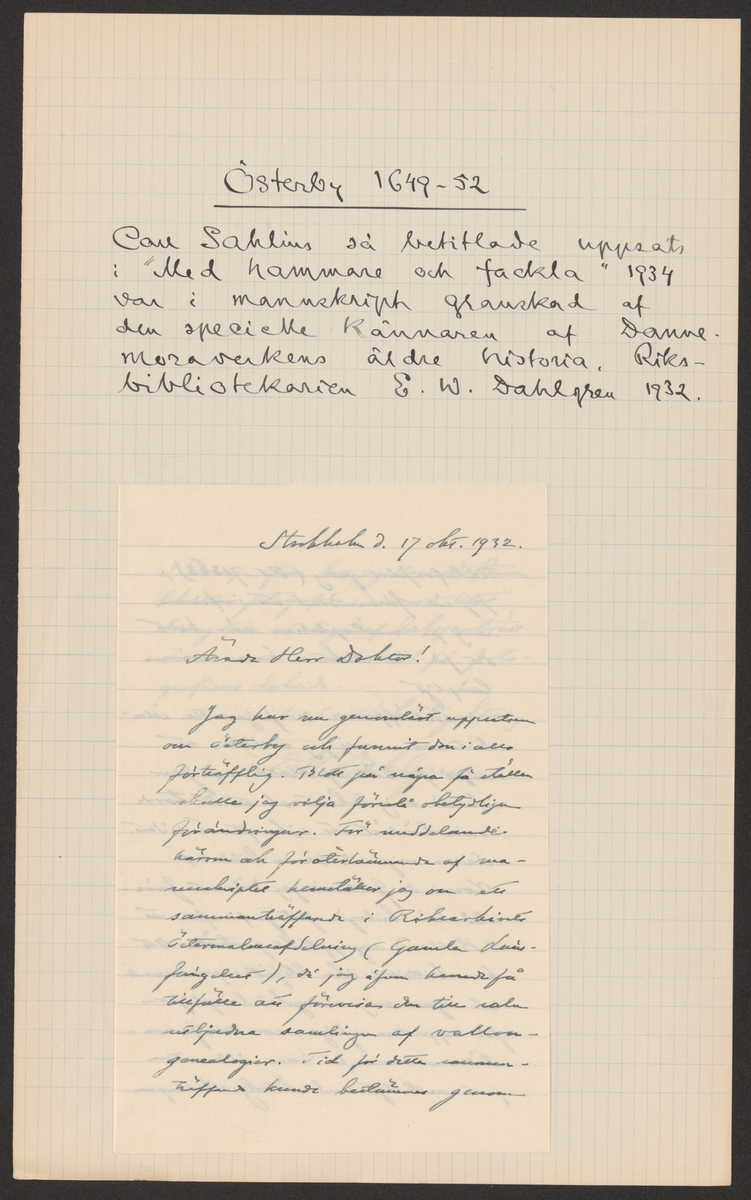 Österby 1649-52
Carl Sahlins så betitlade uppsats
i "Med hammare och fackla" 1934
var i manuskript granskad af
den specielle kännaren af Danne-
moraverkens äldre historia, Riks-
bibliotekarien E. W. Dahlgren 1932.
Stockholm d. 17 okt. 1932.
Ärade Herr Doktor!
Jag har nu genomläst uppsatsen
om Österby och funnit den i allo
förträfflig. Blott på några få ställen
skulle jag vilja föreslå obetydliga
förändringar. För meddelande
härom och för återlämnande af ma-
nuskriptet hemställer jag om ett
sammanträffande i Riksarkivets
Östermalmsafdelning (Gamla Läns-
fängelset), då jag äfven kunde få
tillfälle att förevisa den till
samlingen af vallon-
genealogier. Tid för detta samman-
träffande kunde bestämmas genom